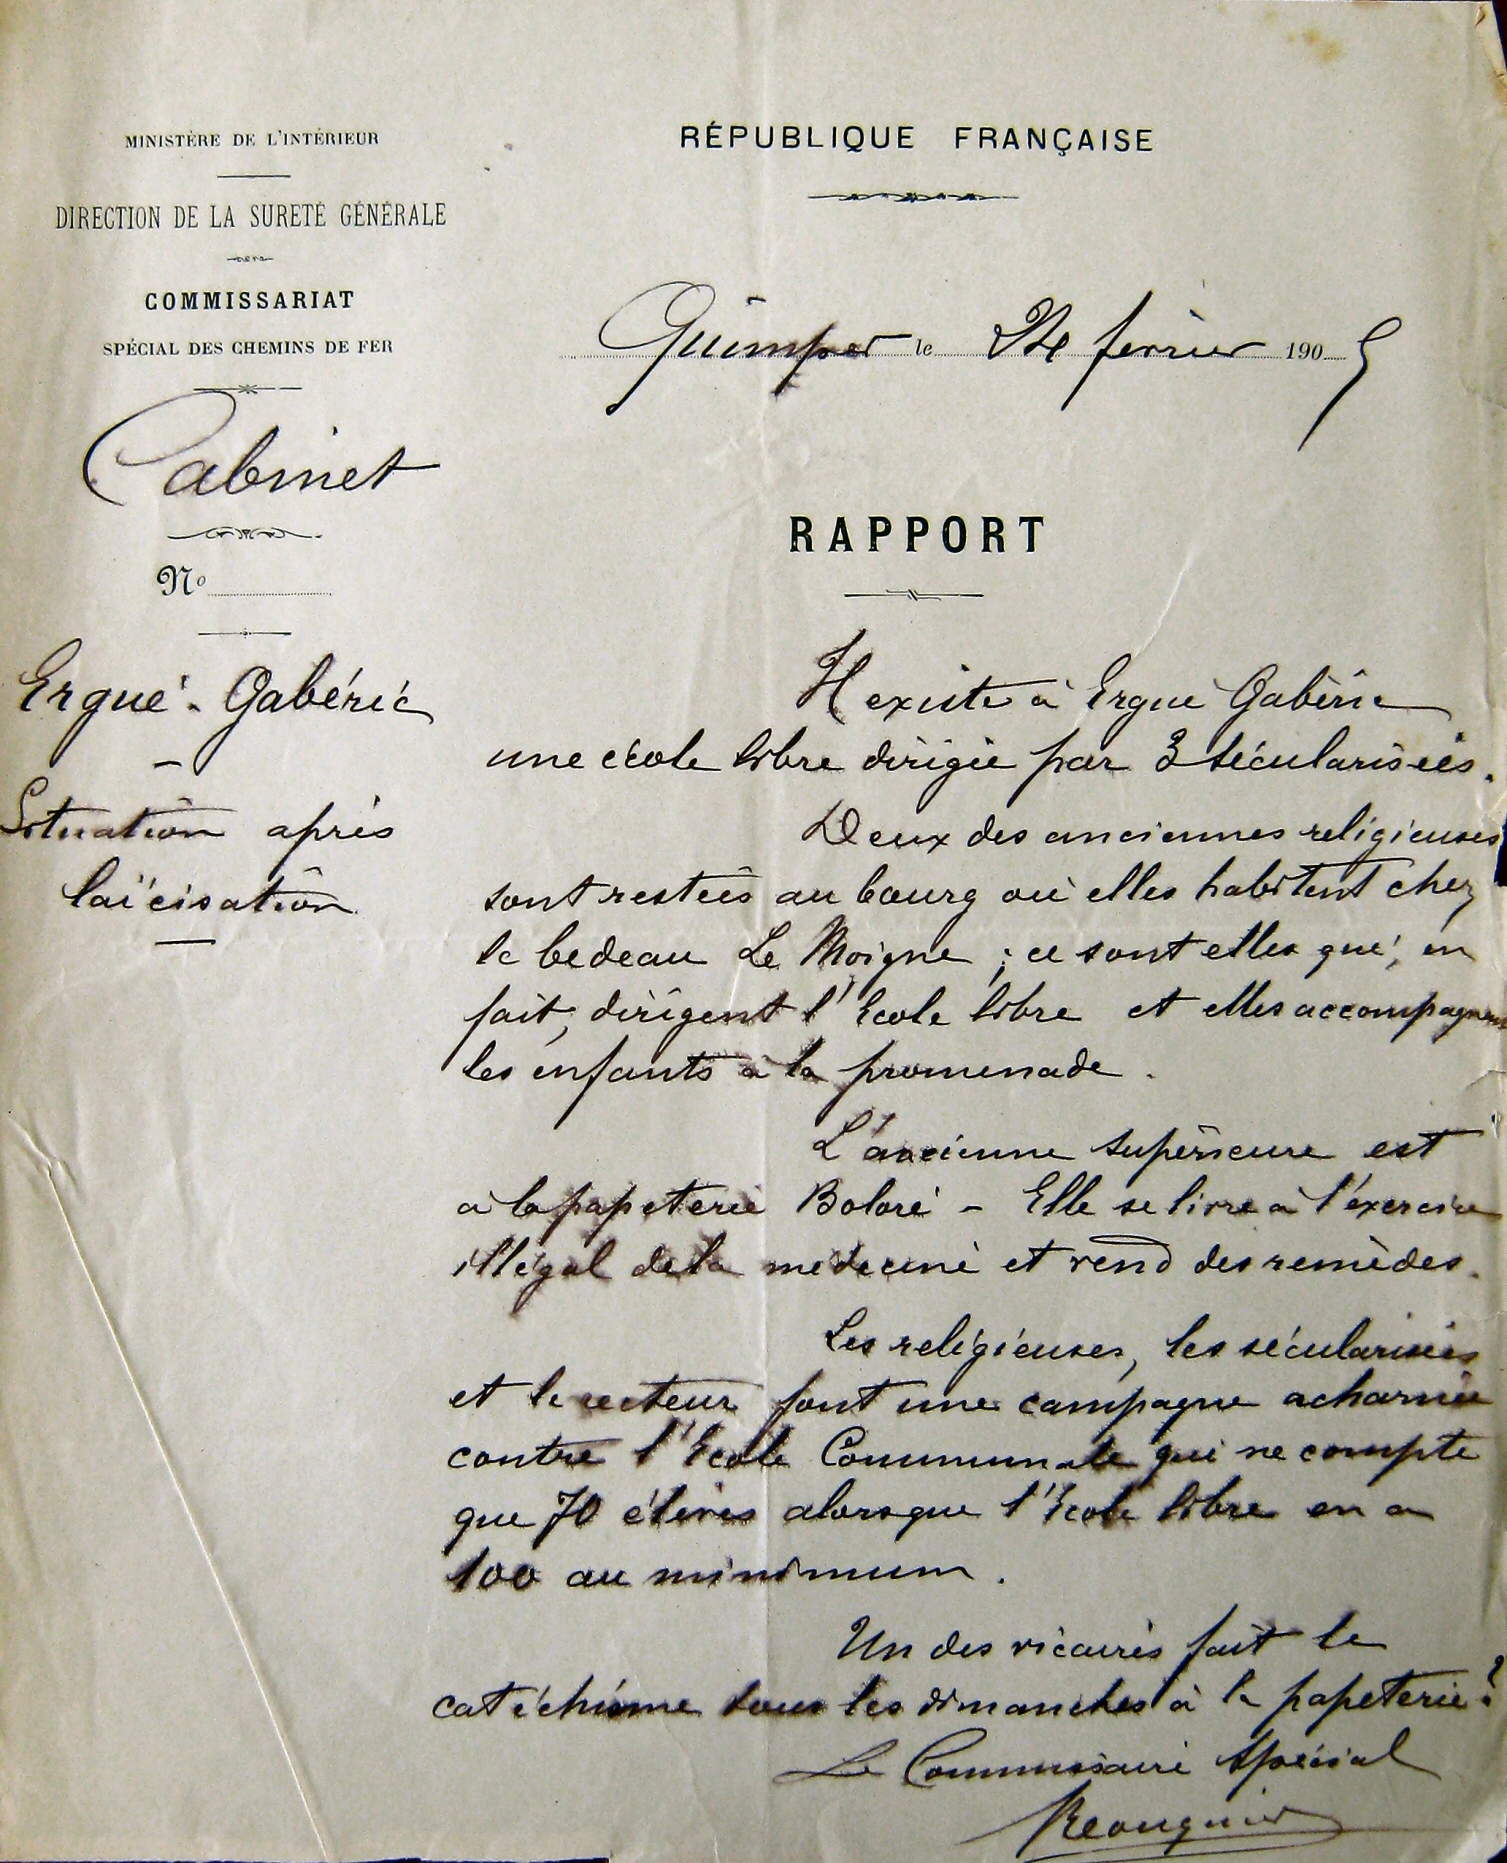 MINISTÈRE DE L'INTÉRIEUR
DIRECTION DE LA SURETÉ GÉNÉRALE
COMMISSARIAT
SPÉCIAL DES CHEMINS DE FER
Cabinet
No
Ergué-Gabéric
-
Situation après
laïcisation
RÉPUBLIQUE FRANÇAISE
Quimper le 24 février 1905
RAPPORT
Il existe à Ergué Gabéric
une école libre dirigée par 3 sécularisées.
Deux des anciennes religieuses
sont restées au bourg où elles habitent chez
le bedeau Le Moigne ; ce sont elles qui, en
fait, dirigent l'Ecole libre et elles accompagnent
les enfants à la promenade.
L'ancienne supérieure est
à la papeterie Boloré - Elle se livre à l'exercice
illégal de la médecine et vend des remèdes.
Les religieuses, les sécularisées
et le recteur font une campagne acharnée
contre l'Ecole Communale qui ne compte
que 70 élèves alors que l'école libre en a
100 au minimum.
Un des vicaires fait le
catéchisme tous les dimanches à la papeterie.
Le Commissaire Spécial